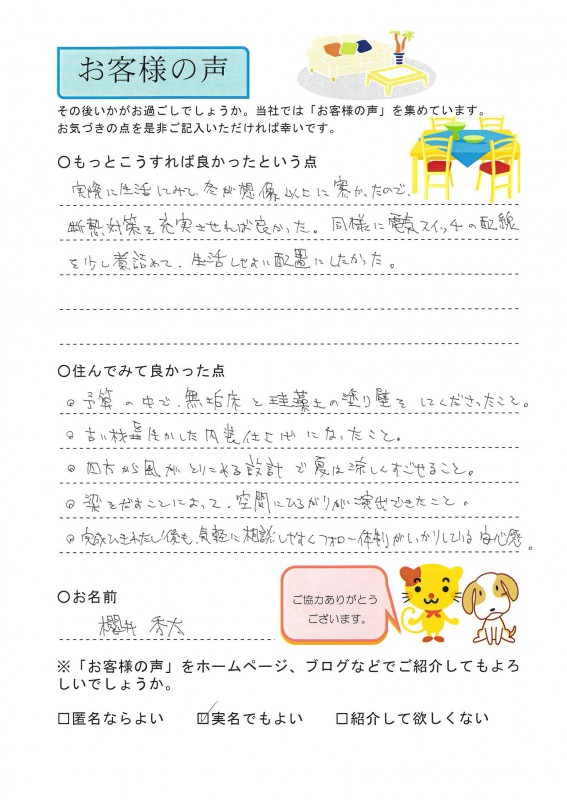 お客様の声
その後いかがお過ごしでしょうか。当社では「お客様の声」を集めています。
お気づきの点を是非ご記入いただければ幸いです。
〇もっとこうすれば良かったという点
実際に生活してみて、冬が想像以上に寒かったので、
断熱対策を充実させれば良かった。同様に電気スイッチの配線
を少し煮詰めて、生活しやすい配置にしたかった。
〇住んでみて良かった点
◎予算の中で、無垢床と珪藻土の塗り壁をしてくださったこと。
◎古い材を生かした内装仕上げになったこと。
◎四方から風がとりこれる設計で夏は涼しくすごせること。
◎梁をだすことによって、空間にひろがりが演出できたこと。
◎完成ひきわたし後も、気軽に相談しやすくフォロー体制がしっかりしている安心感。
〇お名前
櫻井 秀太
ご協力ありがとう
ございます。
※「お客様の声」をホームページ、ブログなどでご紹介してもよろ
しいでしょうか。
□匿名ならよい ☑実名でもよい □紹介して欲しくない